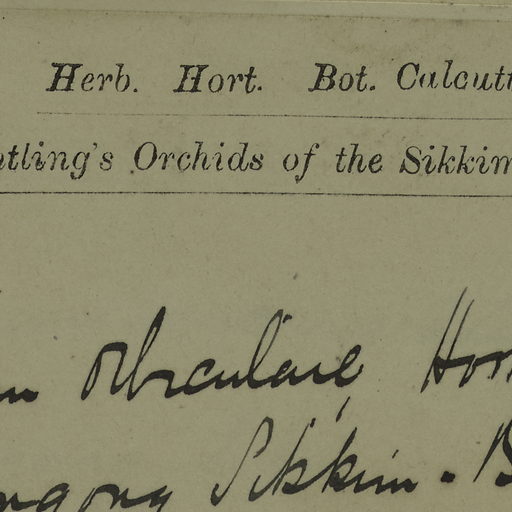 Herb. Hort. Bot. Calcutt
ntling's Orchids of the Sikkim
m orbiculare, Hor
ngong Sikkim. B